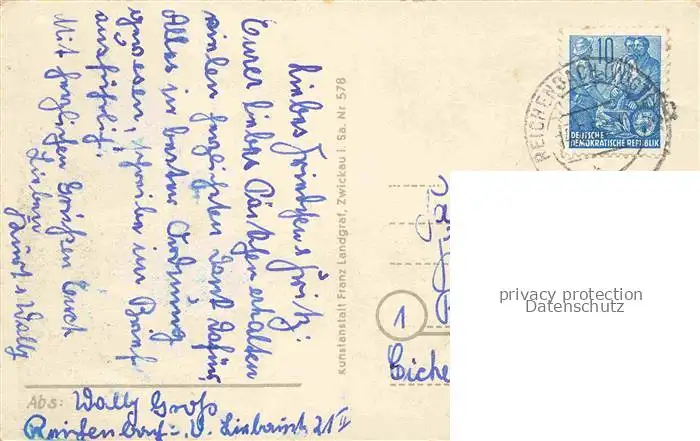 Liebes Friedchen u. Fritz!
Eurer liebes Päckchen erhalten
vielen herzlichsten Dank dafür
Alles in bester Ordnung
gewesen, schreibe im Brief
ausführlich.
Mit herzlichen Grüßen Euch
Lieben
u. Wally
Kunstanstalt Franz Landgraf, Zwickau i. Sa. Nr 578
Abs: Wally Groß
Reichenbach i. V. 21 II
10
DEUTSCHE
DEMOKRATISCHE REPUBLIK
REICHENBACH (VOGTL)
1
Eiche
privacy protection
Datenschutz